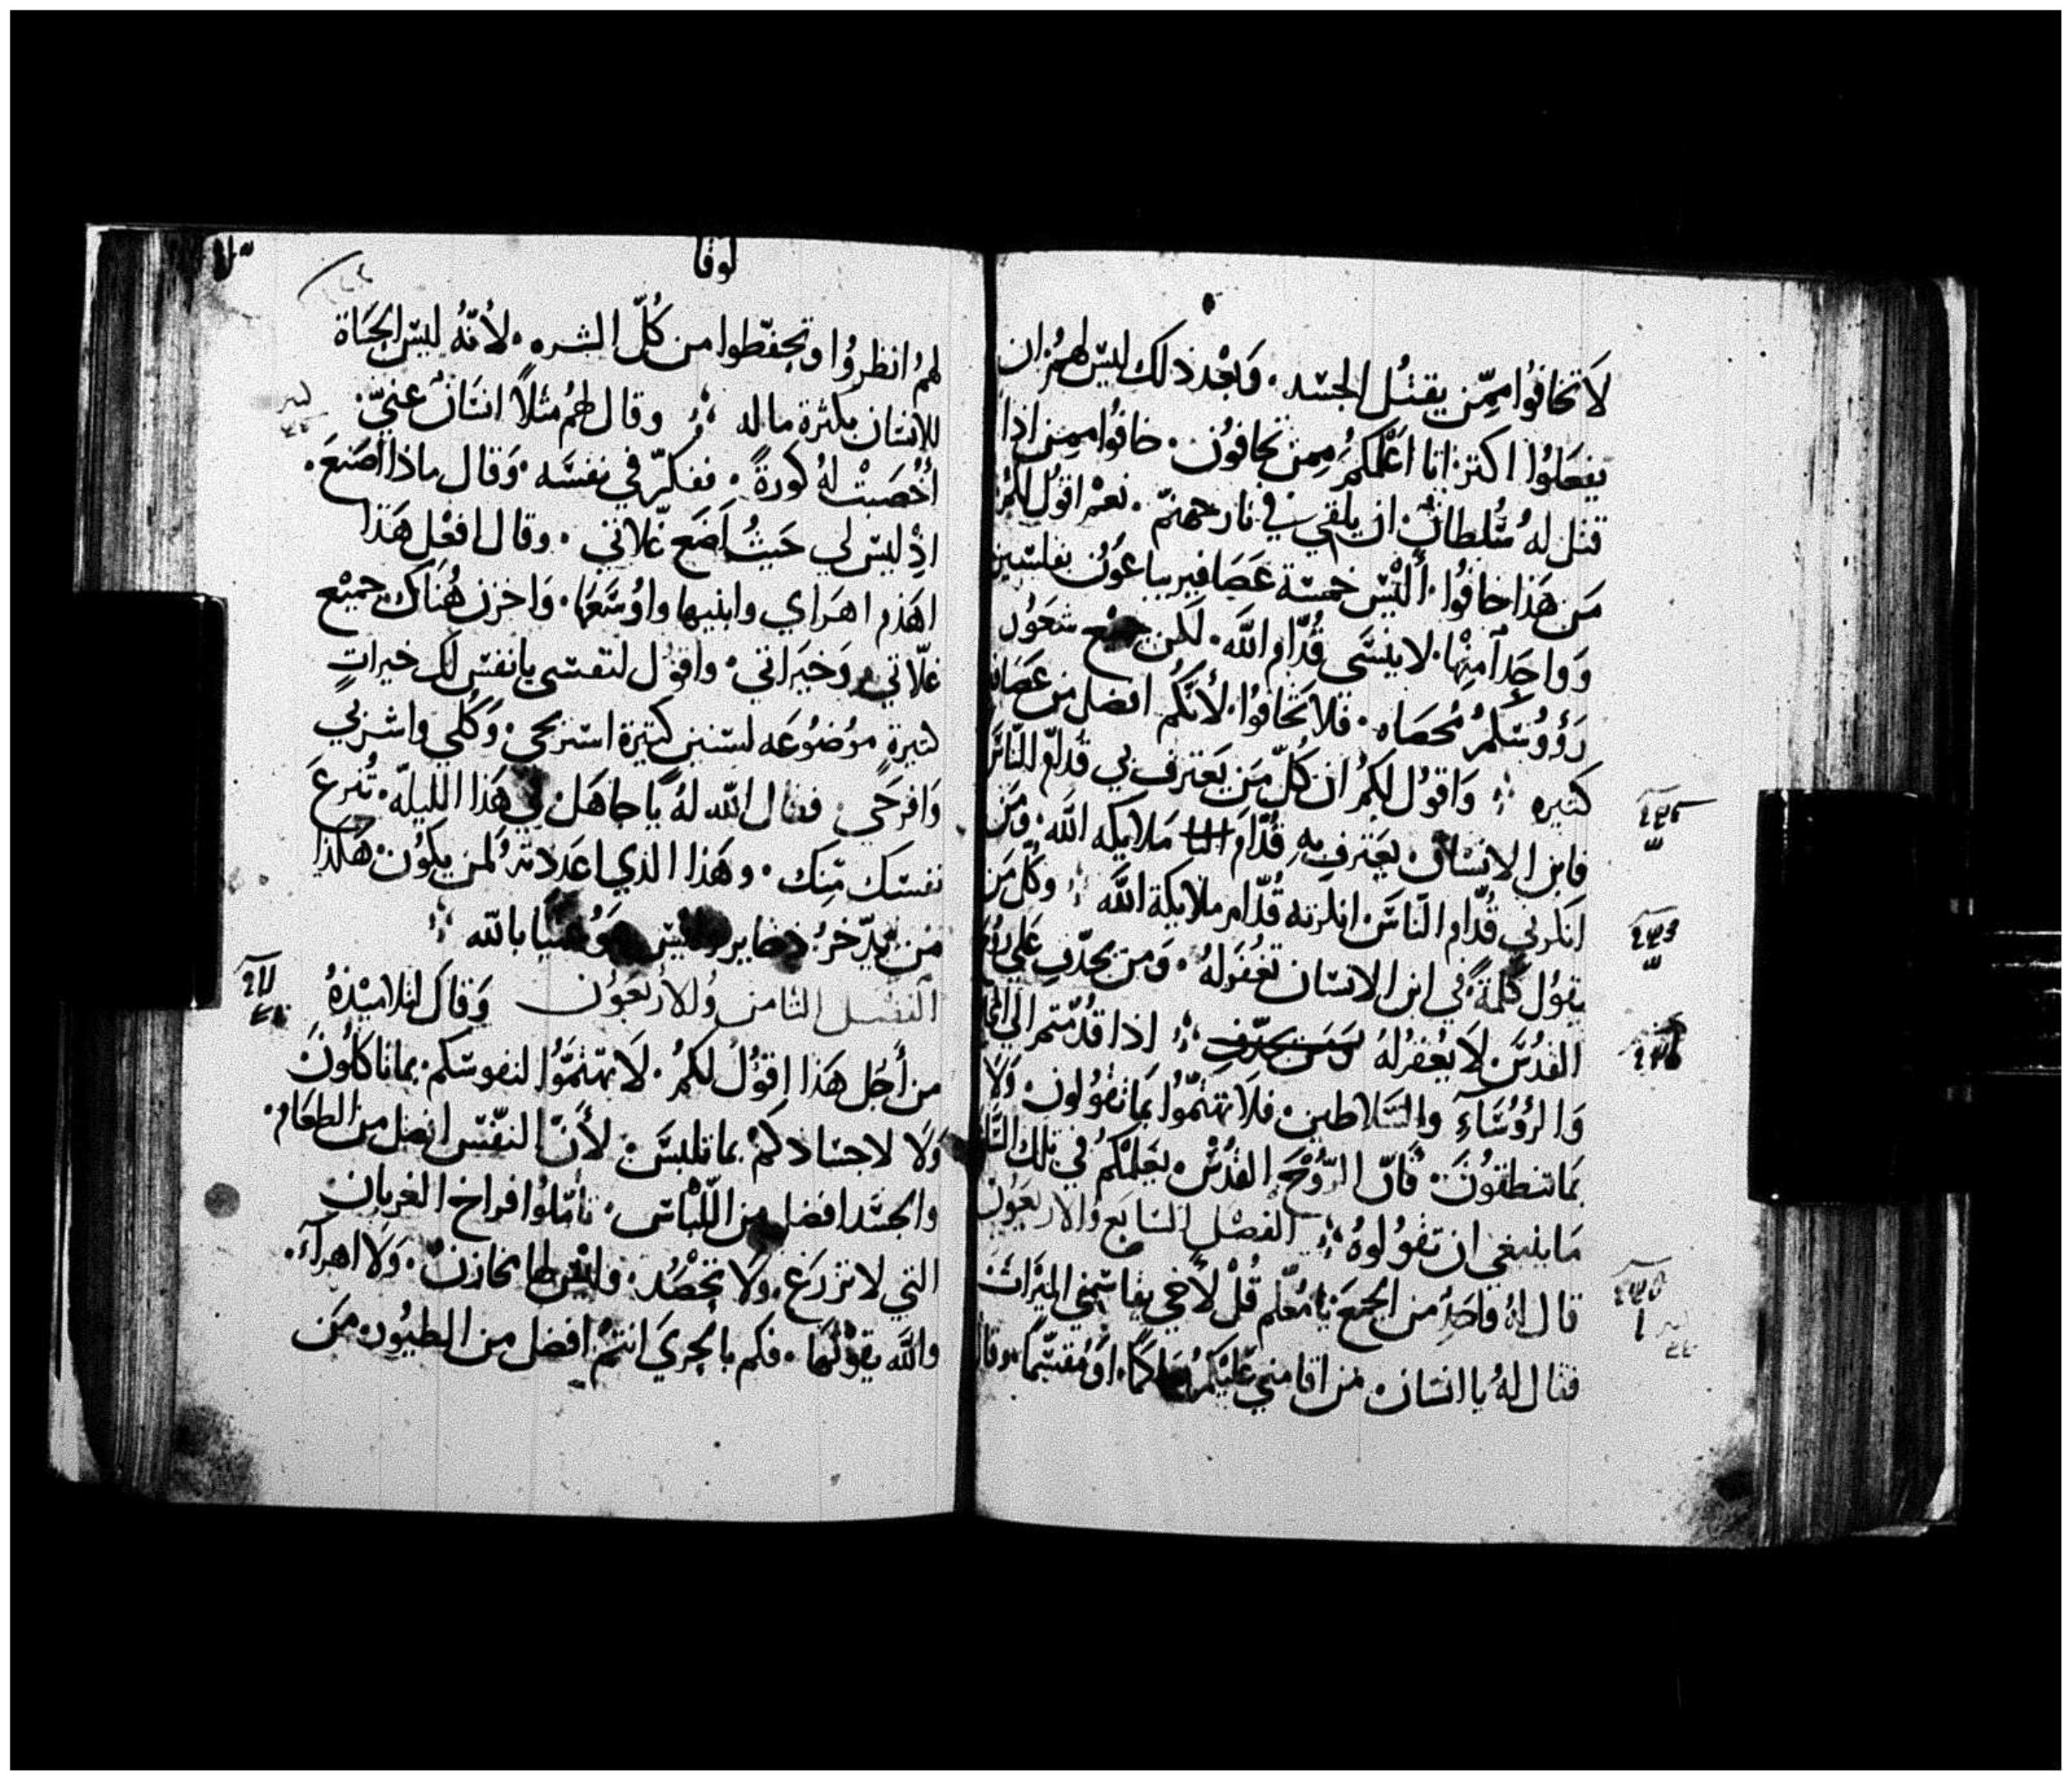 لَا تخافوُا ممِّن يقتُل الجسَد ۰ وَبَعْدذلك ليسَ لهمُ ان
يفعَلوُا اكثر انا اعَلّمكمُ ممِن تخافوُن ۰ خافوُا ممن اذا
قتل لهُ سُلطانٌ ان يلقي في نار جهنمّ ۰ نعمْ اقوُل لكمُ
مَن هَذا خافوُا ۰ أَليْسَ خمسَة عَصَافير يباعوُن بفلسَين
وَواحِداً مِنْها ۰ لا ينسَى قُدّام الله ۰ لكن جميع شعَوُر
رَؤوُسَكمُ مُحصَاه ۰ فلَا تخافوُا ۰ لأنكُم افضل من عَصَافير
كثيره ۰ وَاقوُل لكمُ ان كُلّ مَن يَعترف بي قدامّ الناسَ
فابن الانسَان يعَترف بِهِ قُدّامَ ملايكه الله ۰ ومَن
انكرني قُدّام الناسَ انكرته قُدّام ملايكة الله ۰ وكُلّ مَن
يقوُل كلمةً في ابن الانسَان تغُفَر لهُ ۰ وَمن يجدّف علي رُوح
القدُسَ لَا يغُفر لهُ وَمَن يجدّف ۰ اذا قدُمّتم الي المجَا
وَالرؤوُسَآءِ والسَّلاطين ۰ فلَا تهتمّوُا بمَا تقوُلون ۰ وَلَا
بمَا تنطقوُنَ ۰ فَانّ الرّوُحَ القدُسْ ۰ يعَلّمكمُ في تلك السَّا
مَا ينبغي ان تقوُلوهُ ۰ الفصْل السَابَع وُالاربعَوُن
قال لهُ وَاحَدٍ من الجمعَ يا معُلّم قُلْ لأخي يقاسمني الميَراثَ
فقال لهُ يا انسَان ۰ من اقامني عَليْكمُ حَاكمًا ۰ اوَ مُقسّماً ۰ وقال
لوقا
لهمُ انظروُا وتحفّظوا من كُلّ الشره ۰ لأنهُ ليسَ الحيَاة
للإنسَان بكثرة ماله ۰ وقال لهمُ مثلاً انسَانٌ غنيّ ۰
أُخْصَبتْ لهُ كورةً ۰ ففكرّ في نفسَه ۰ وَقال ماذا اصَنعَ ۰
اذْ ليسَ لي حَيثُ اَضَع غلاتي ۰ وقال افعْل هَذا
اهَدم اهرَاي وابنيها واوُسَعَّها ۰ وَاخزن هُنَاك جميْع
غلّاتي وَخيَراتي ۰ واقوُل لنفسَى يا نفسَ لك خيراتٍ
كثيرةٍ موُضوُعَه لسَنين كثيرة استريحي ۰ وَكُلي واشربي
وَافرحَي ۰ فقال الله لهُ يَا جاهَل في هَذا الليله ۰ تُنزعَ
نفسَك مِنك ۰ وهَذا الذي اعدَدته لمن يكوُن ۰ هَكذا
مَن يدّخرُ ذخاير وليسَ هوَ غنيا بالله
الفصْل الثامن وُالاربعَوُن وَقال لتلاميْذهُ
من أجْل هَذا اقوُلُ لكمُ ۰ لَا تهتمَّوُا لنفوسَكم ۰ بما تاكلوُنَ
وَلَا لاجسَادكمْ بما تلبسَ ۰ لأنَّ النفّسَ افضل من الطعَام ۰
والجسَد افضل من اللّباسَ ۰ تأمّلوُا فراخ الغربان
التي لا تزرَعَ ۰ ولَا تحْصُد ۰ وليْسَ لها مخازنْ ۰ وَلَا اهرآءَ ۰
والله يقوْتُها ۰ فكم بالحرَي انتمُ افضل من الطيوُر ۰ مَن